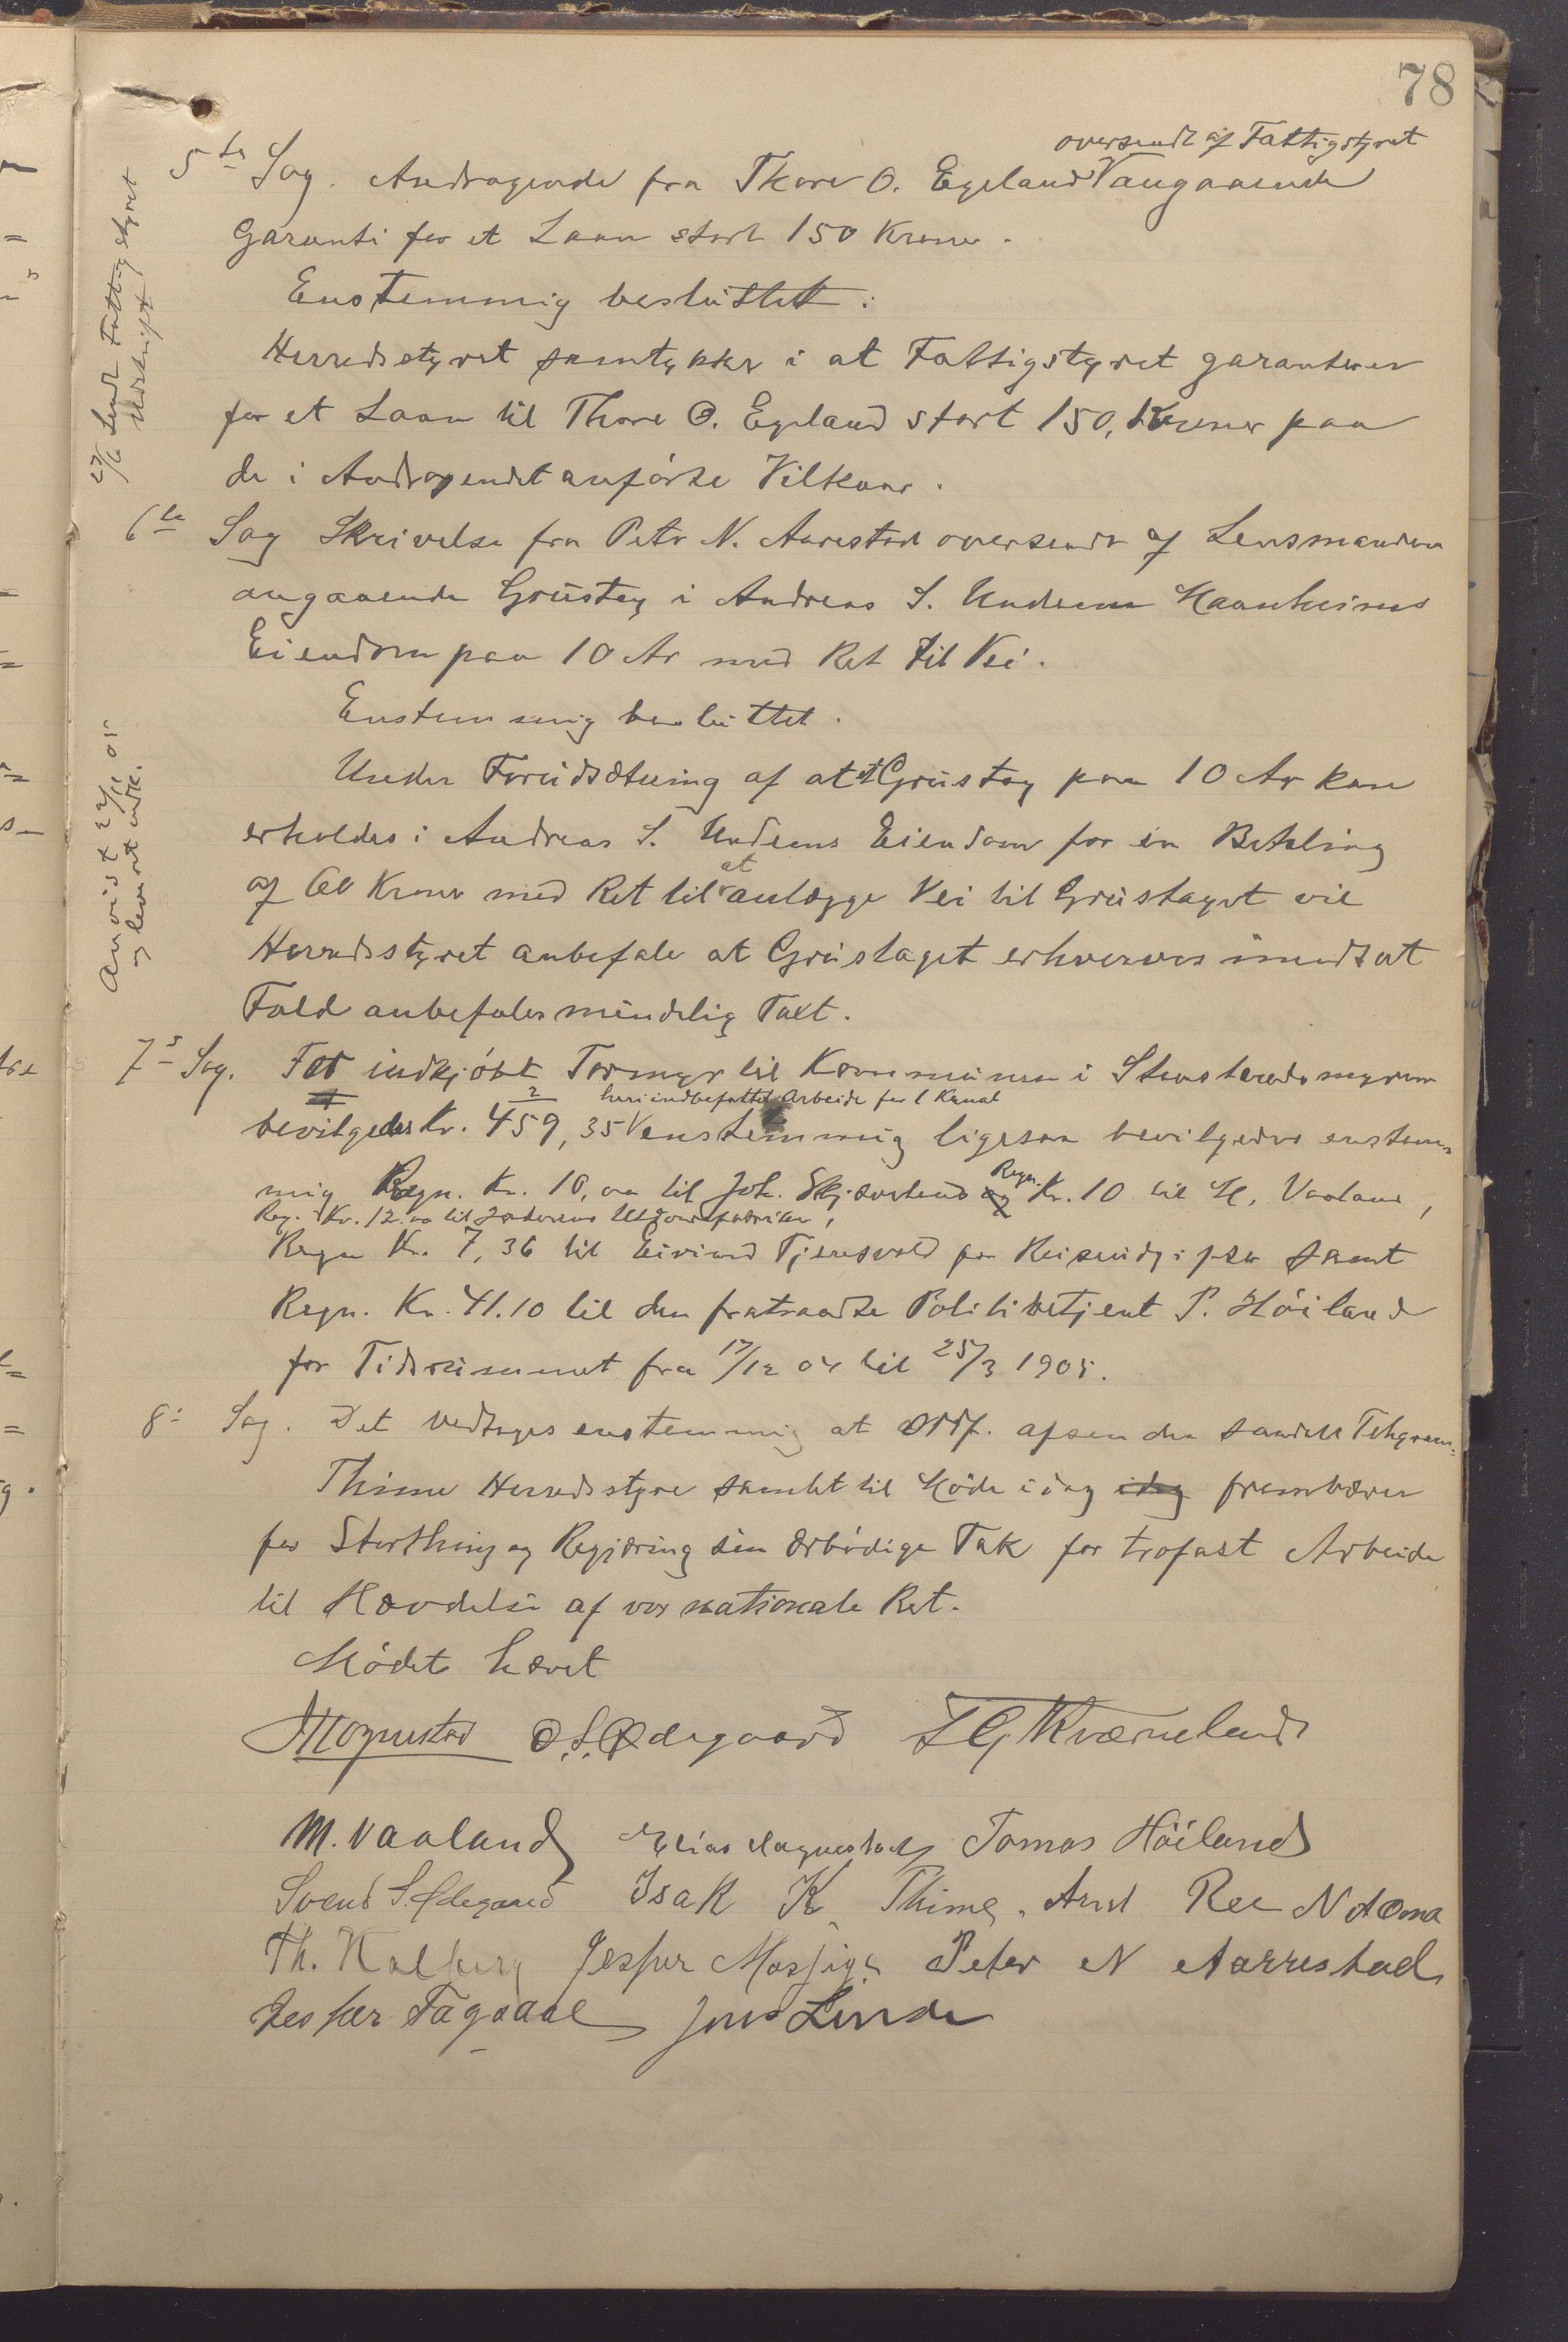 78
oversendt af Fattigstyret
5te Sag. Andragende fra Thore O. Egeland V angaaende
Garanti for et Laan stort 150 Kroner.
Enstemmig besluttet:
Herredsstyret samtykker i at Fattigstyret garanterer
for et Laan til Thore O. Egeland stort 150, Kroner paa
de i Andragendet anførte Vilkaar.
27/6 Sendt Fattigstyret
Udskrift
6te Sag Skrivelse fra Peter N. Aarestad oversendt af Lensmanden
angaaende Grustag i Andreas S. Undem Haanheims
Eiendom paa 10 Ar med Ret til Vei.
Enstemmig besluttet.
Under Forudsætning af at et Grustag paa 10 Ar kan
erholdes i Andreas S. Undems Eiendom for en Betaling
at
af 60 Kroner med Ret til anlægge Vei til Grustaget vil
Herredsstyret anbefale at Grustaget erhverves i modsat
Fald anbefales mindelig Taxt.
Anvist 27/6 05
og levert udk.
7de Sag. For indkjøbt Tormyr til Kommunen i Stenslandsmyren
heri indbefattet Arbeide for 1 Kanal
bevilgedes Kr. 459,35 V enstemmig ligesaa bevilgedes enstem
Regn.
mig Regn. Kr. 10,00 til Joh. Skjæveland og Kr. 10 til H. Vaaland,
Reg. Kr. 12.00 til Jæderens Uldvarefabriker,
Regn Kr. 7,36 til Eivind Tjensvold for Reiseudgifter samt
Regn. Kr. 41.10 til den fratraadte Politibetjent P. Høiland
for Tidsrummet fra 17/12 04 til 25/3 1905.
8de Sag. Det vedtages enstemmig at Ordf. afsender saadant Telegram:
Thime Herredsstyre samlet til Møde i dag idag frembærer
for Storthing og Regjæring sin ærbødige Tak for trofast Arbeide
til Hævdelse af vor nationale Ret.
Mødet hævet
J Mognestad O. S. Ødegaard T G Kværneland
M. Vaaland Elias Mognestad Tomas Høiland
Svend S. Ødegaard Isak K. Thime. Arnt Ree N Aoma
Th. Kalberg Jesper Mossige Peter N Aarrestad
Jesper Tagdaal Jens Linde